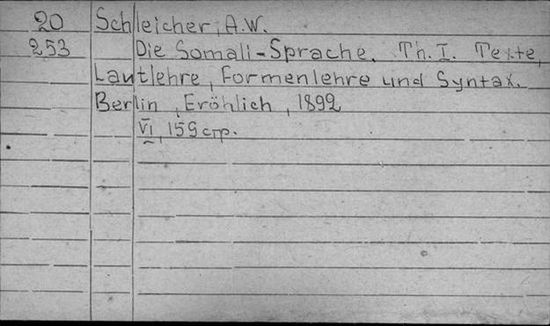 20 Schleicher, A.W.
253 Die Somali-Sprache. Th. I. Texte,
Lautlehre, Formenlehre und Syntax.
Berlin, Fröhlich, 1892
VI, 159 стр.